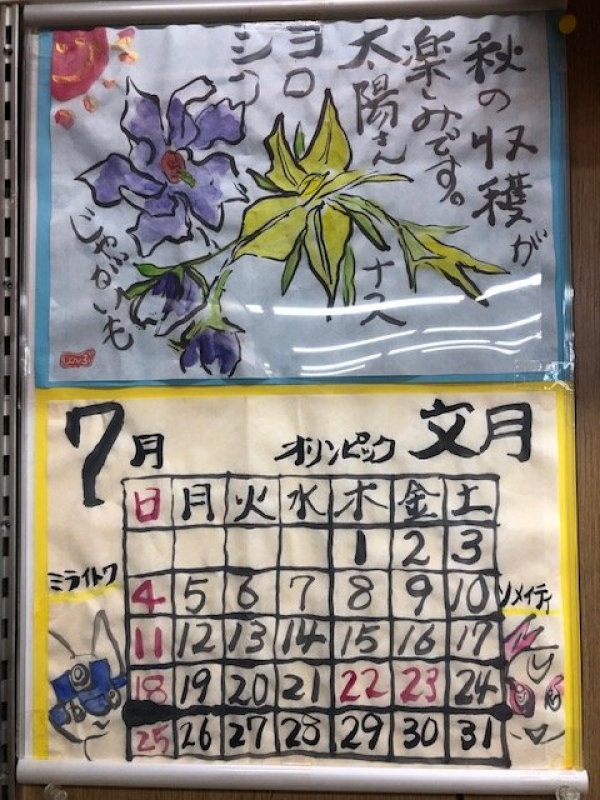 秋の収穫が
楽しみです。
太陽さん
ヨロ
シク
ナス
じゃがいも
7月 オリンピック 文月
日 月 火 水 木 金 土
1 2 3
4 5 6 7 8 9 10
11 12 13 14 15 16 17
18 19 20 21 22 23 24
25 26 27 28 29 30 31
ミライトワ
ソメイティ